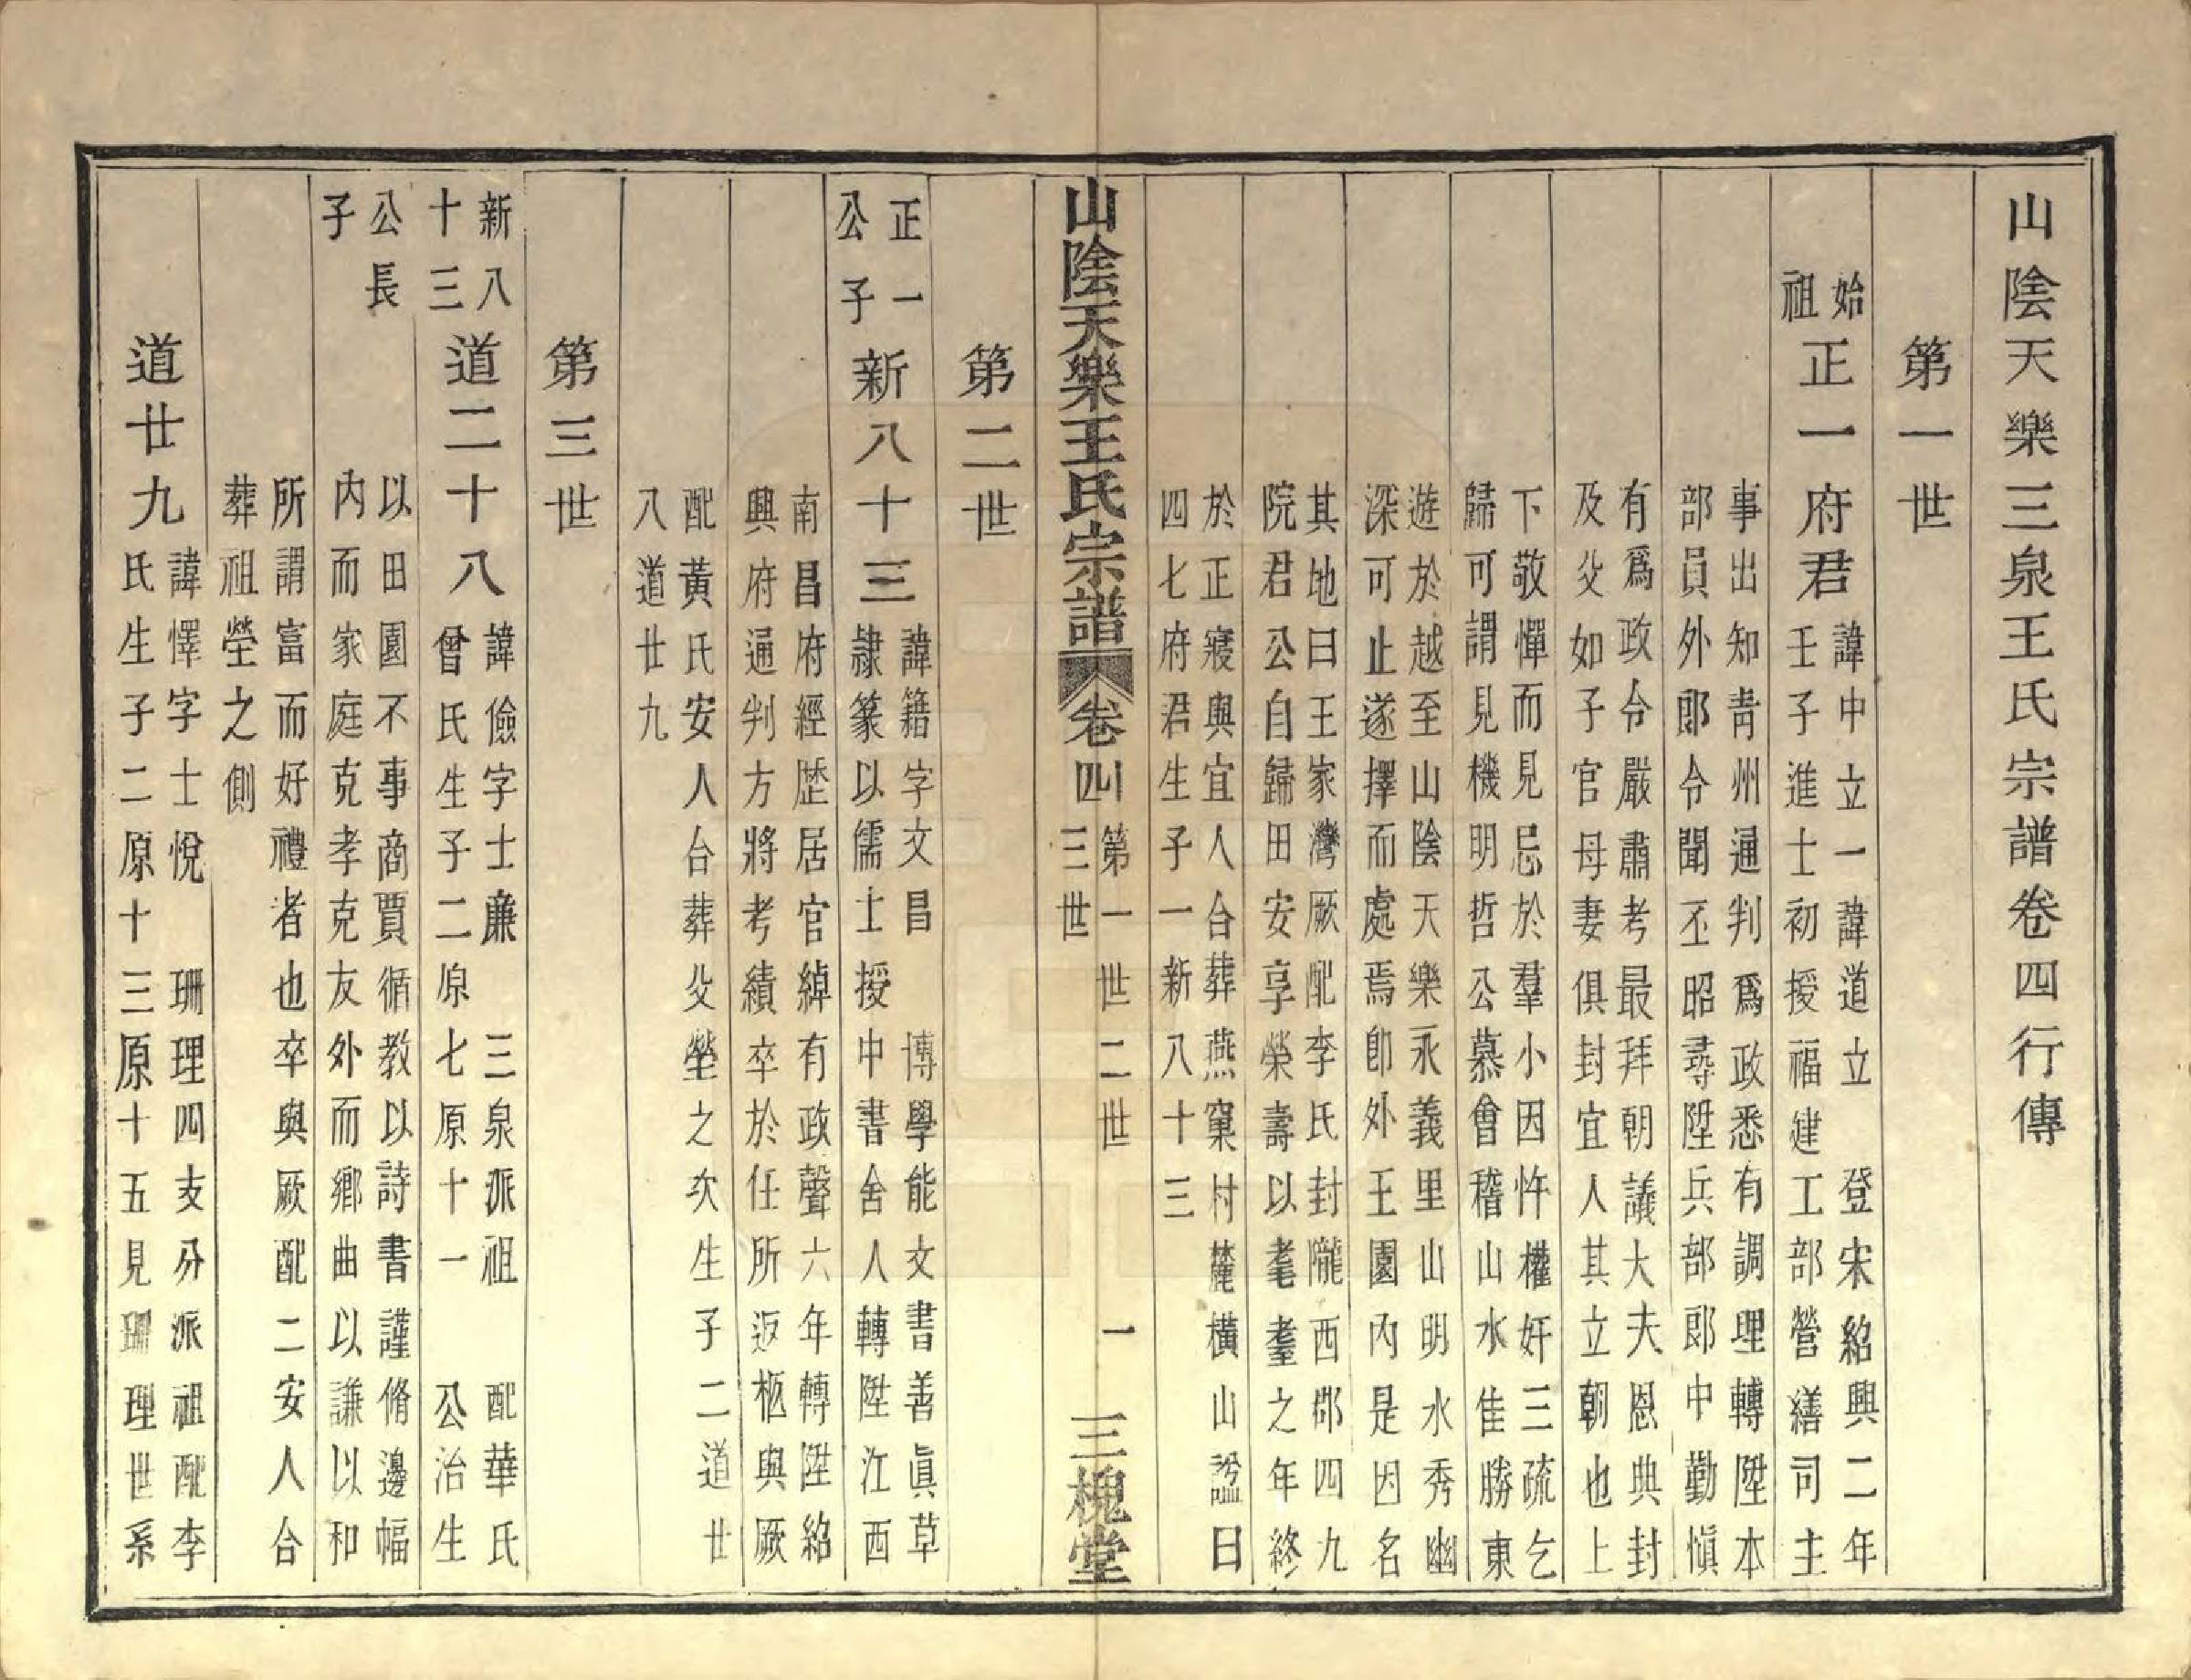 山陰天樂三泉王氏宗譜卷四行傳
第一世
始
祖
正一府君
諱中立一諱道立　登宋紹興二年
壬子進士初授福建工部營繕司主
事出知青州通判爲政悉有調理轉陞本
部員外郎令聞丕昭尋陞兵部郎中勤慎
有爲政令嚴肅考最拜朝議大夫恩典封
及父如子官母妻俱封宜人其立朝也上
下敬憚而見忌於羣小因忤權奸三疏乞
歸可謂見機明哲公慕會稽山水佳勝東
遊於越至山陰天樂永義里山明水秀幽
深可止遂擇而處焉卽外王園內是因名
其地曰王家灣厥配李氏封隴西郡四九
院君公自歸田安享榮壽以耄耋之年終
於正寢與宜人合葬燕窠村麓橫山諡曰
四七府君生子一新八十三
山陰天樂王氏宗譜　卷四　第一世二世
三世　一　三槐堂
第二世
正一
公子
新八十三
諱籍字文昌　博學能文書善眞草
隷篆以儒士授中書舍人轉陞江西
南昌府經歷居官綽有政聲六年轉陞紹
興府通判方將考績卒於任所返柩與厥
配黃氏安人合葬父塋之次生子二道廿
八道廿九
第三世
新八
十三
道二十八
諱儉字士廉　三泉派祖　配華氏
曾氏生子二原七原十一　公治生
公長
子
以田園不事商賈循教以詩書謹脩邊幅
内而家庭克孝克友外而鄉曲以謙以和
所謂富而好禮者也卒與厥配二安人合
葬祖塋之側
道廿九
諱懌字士悅　珊理四支分派祖配李
氏生子二原十三原十五見珊理世系